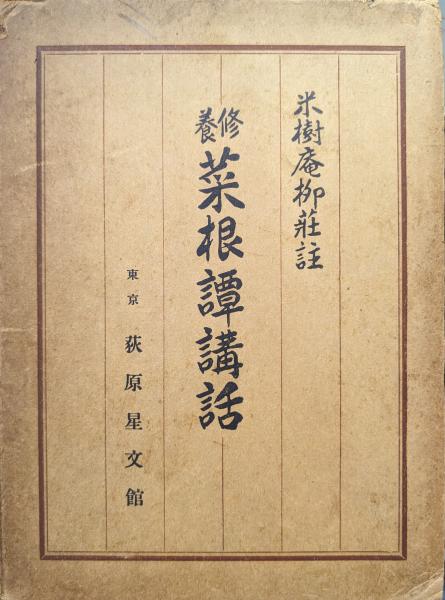 米樹庵柳荘註
修養
菜根譚講話
東京 荻原星文館